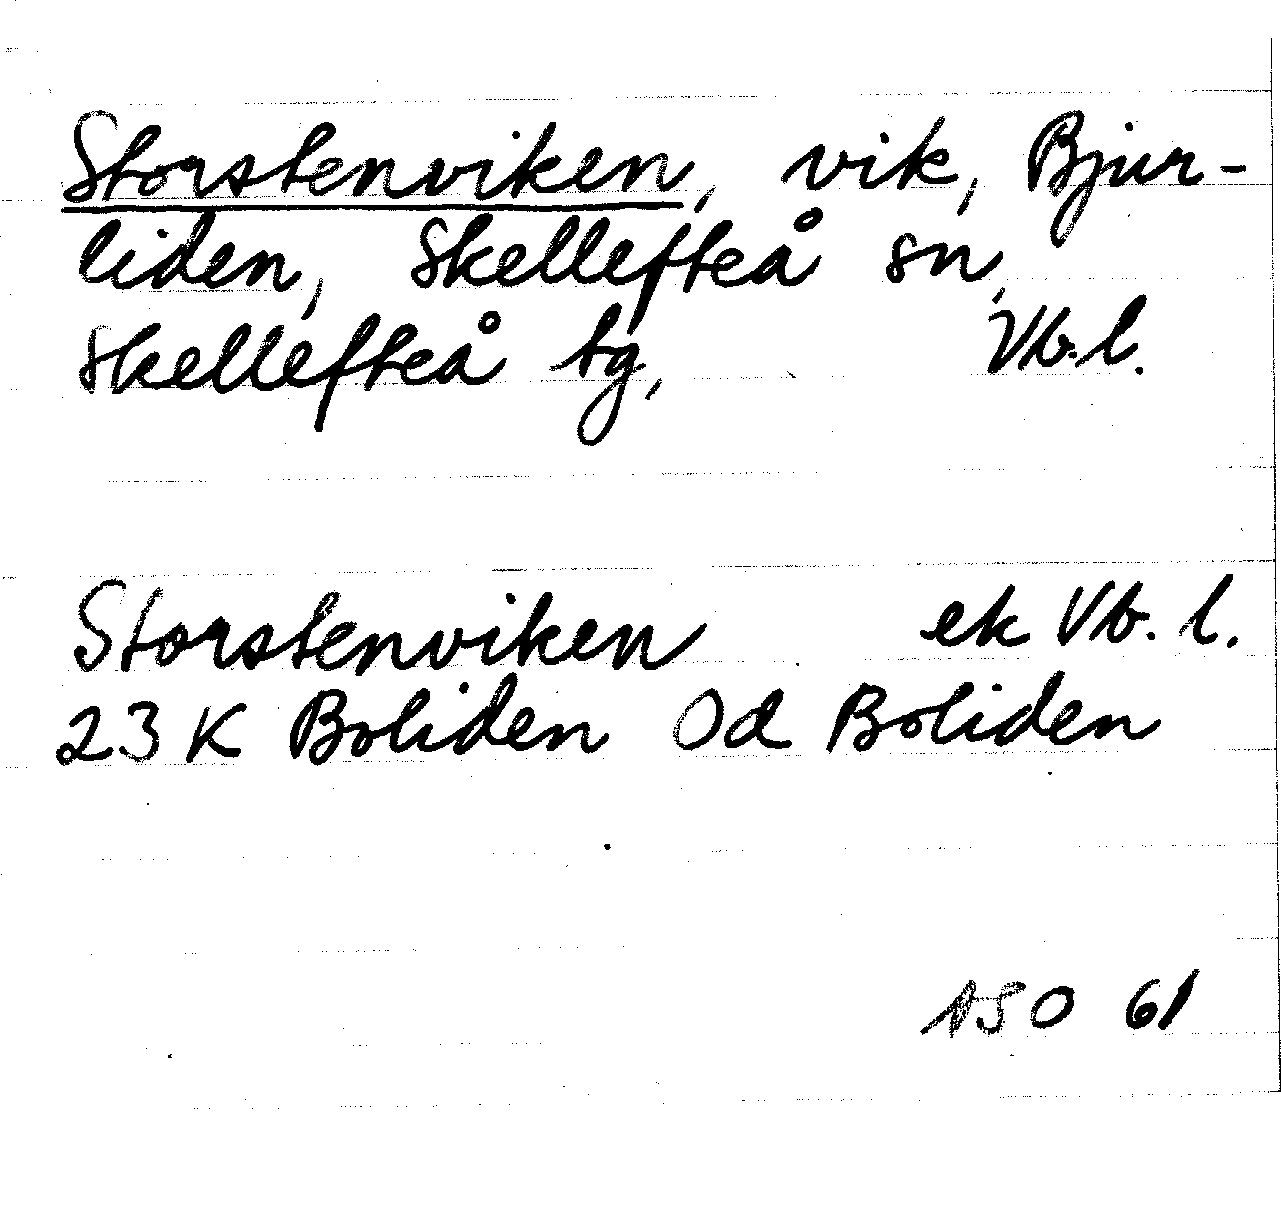 Storstenviken, vik, Bjur-
liden, Skellefteå sn,
Skellefteå tg, Vb.l.
Storstenviken ek Vb. l.
23 K Boliden Od Boliden
ASO 61